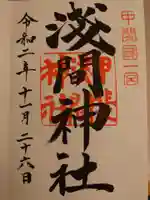 甲斐國一宮
淺間神社
令和二年十一月二十六日